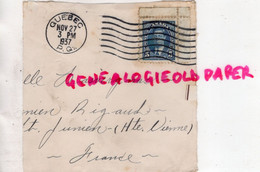 QUEBEC
NOV 27
3 PM
1937
P.Q.
GENEALOGIEOLD PAPER
nien Rigaud
t. Junien - (Hte. Vienne)
France